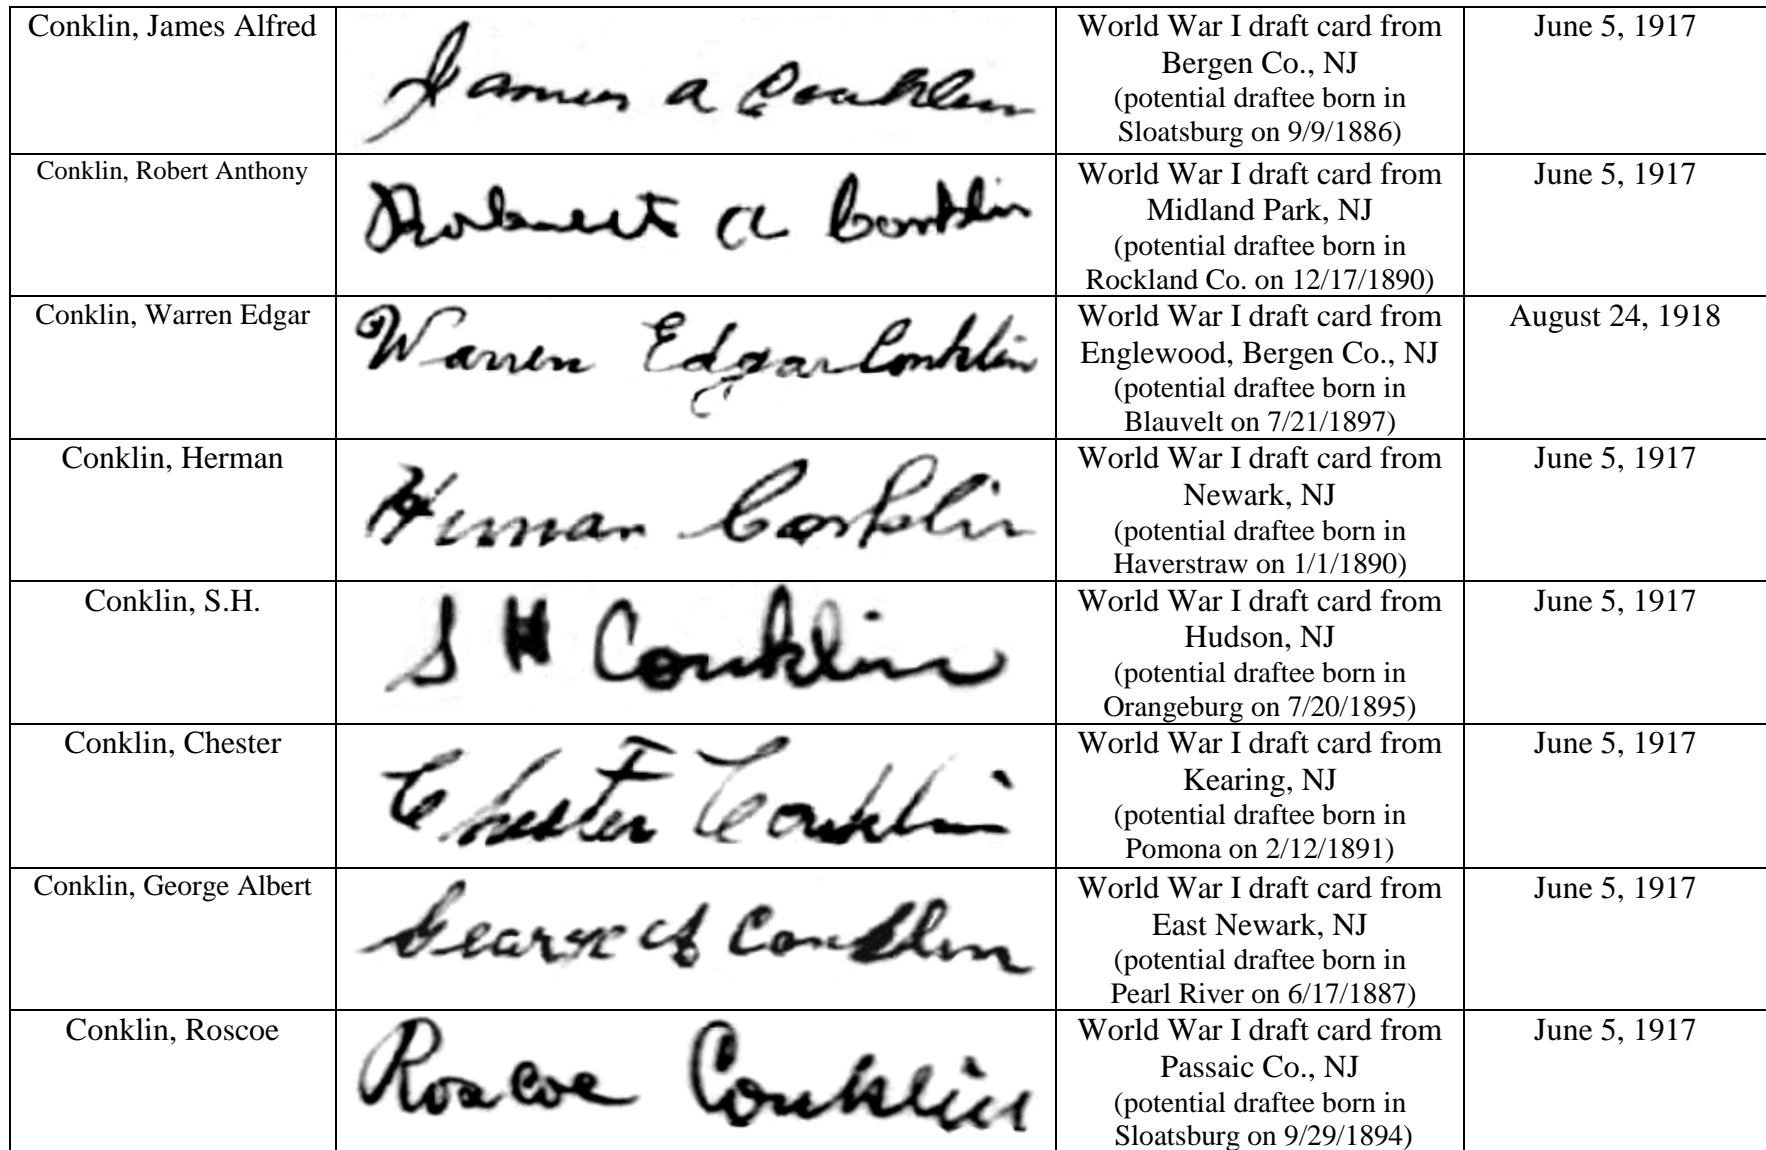 Conklin, James Alfred
James A Conklin
World War I draft card from
Bergen Co., NJ
(potential draftee born in
Sloatsburg on 9/9/1886)
June 5, 1917
Conklin, Robert Anthony
Robert A Conklin
World War I draft card from
Midland Park, NJ
(potential draftee born in
Rockland Co. on 12/17/1890)
June 5, 1917
Conklin, Warren Edgar
Warren Edgar Conklin
World War I draft card from
Englewood, Bergen Co., NJ
(potential draftee born in
Blauvelt on 7/21/1897)
August 24, 1918
Conklin, Herman
Herman Conklin
World War I draft card from
Newark, NJ
(potential draftee born in
Haverstraw on 1/1/1890)
June 5, 1917
Conklin, S.H.
S H Conklin
World War I draft card from
Hudson, NJ
(potential draftee born in
Orangeburg on 7/20/1895)
June 5, 1917
Conklin, Chester
Chester Conklin
World War I draft card from
Kearing, NJ
(potential draftee born in
Pomona on 2/12/1891)
June 5, 1917
Conklin, George Albert
George A Conklin
World War I draft card from
East Newark, NJ
(potential draftee born in
Pearl River on 6/17/1887)
June 5, 1917
Conklin, Roscoe
Roscoe Conklin
World War I draft card from
Passaic Co., NJ
(potential draftee born in
Sloatsburg on 9/29/1894)
June 5, 1917